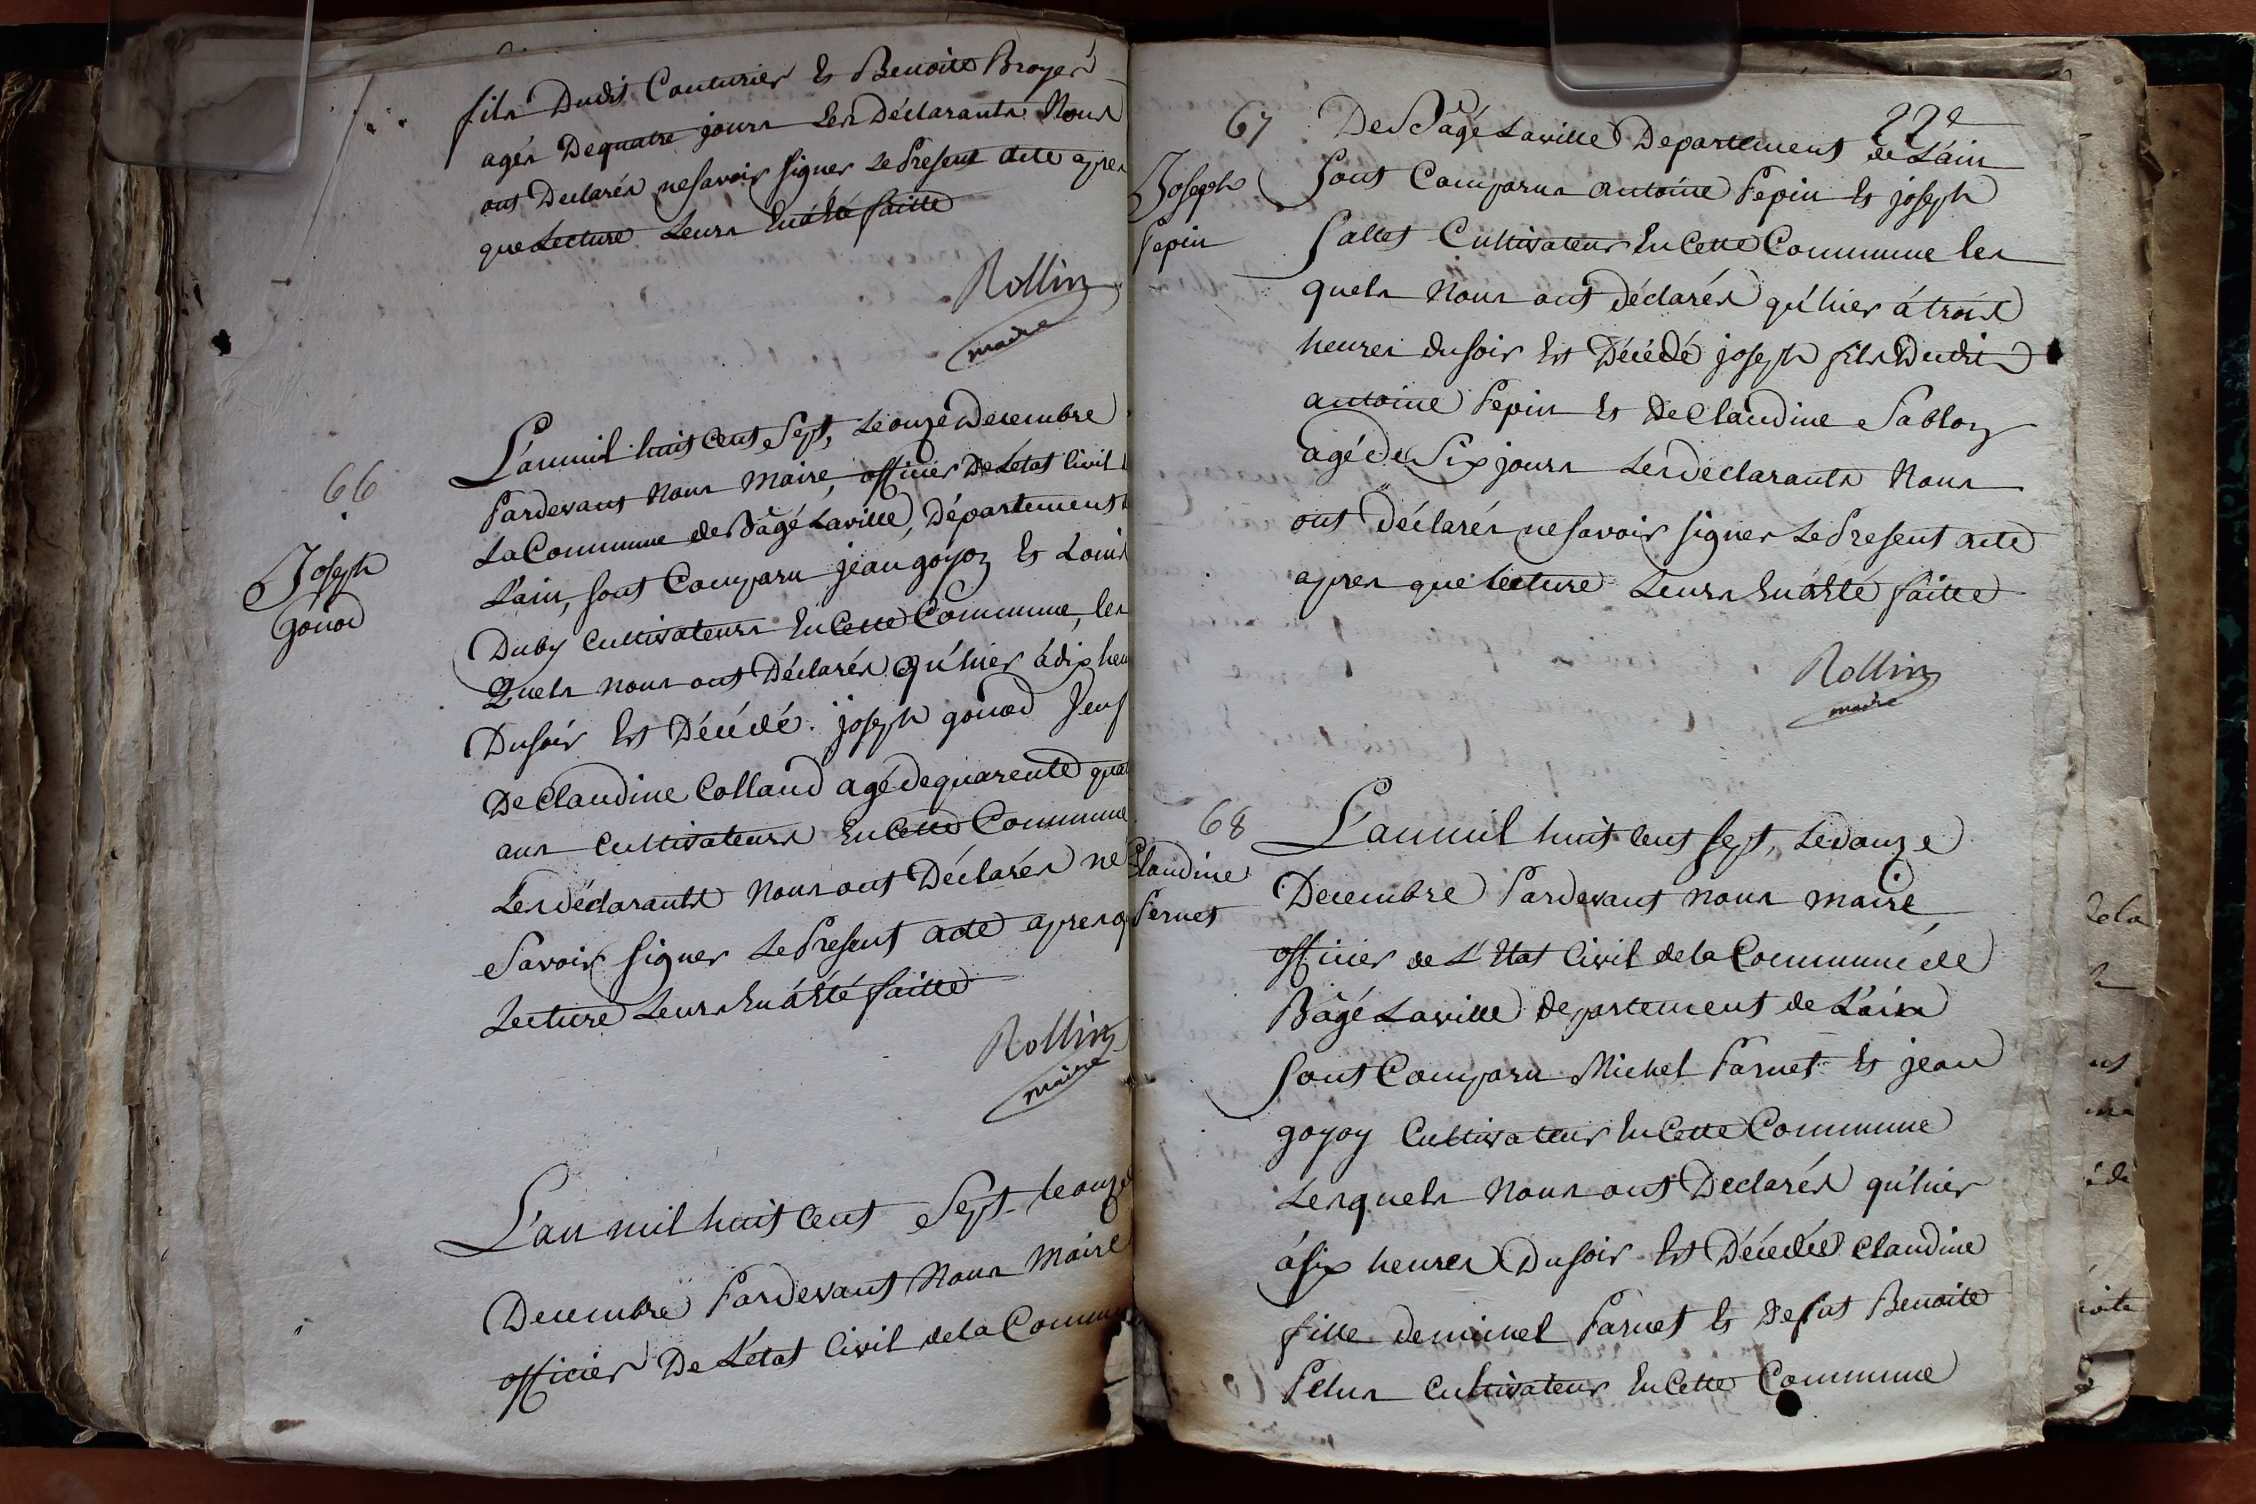 fils Dudit Couturier Et Benoite Broyer
agés De quatre jours Les Déclarants Nous
ont Declarés ne savoir signer Le Present acte apres
que Lecture Leurs En á Eté faitte
Rollin
maire
66
Joseph
gonod
L'an mil huit cent Sept, Le onze Decembre
Pardevant Nous Maire, officier De L'état Civil
La Commune de Bâgé Laville, Département
L'ain, sont Comparu jean goyon Et Louis
Duby Cultivateurs En Cette Commune, les
Quels nous ont Déclarés qu'hier á dix heu
Du soir Est Décédé joseph gonod Veuf
De Claudine Colland agé de quarente qua
ans Cultivateurs En Cette Commune
Les déclarants Nous ont Déclarés ne
Savoir signer Le Present acte apres q
Lecture Leurs En á Eté faitte
Rollin
maire
L'an mil huit cent Sept Le onze
Decembre Pardevant Nous Maire
officier De L'état Civil de la Commu
22e
67
Joseph
Pepin
De Bâgé Laville Departement de L'ain
sont Comparus antoine Pepin Et joseph
Pallet Cultivateur En Cette Commune les
quels Nous ont déclarés qu'hier á trois
heures du soir Est Décédé joseph fils Dudit
antoine Pepin Et de Claudine Sablon
agé de Six jours Les declarants Nous
ont déclarés ne savoir signer Le Present acte
apres que lecture Leurs En á Eté faitte
Rollin
maire
68
Claudine
Pernet
L'an mil huit cent sept, Le douze
Decembre Pardevant nous maire
officier de L'Etat Civil de la Commune de
Bâgé Laville departement de L'ain
sont Comparu Michel Parnet Et jean
goyoy Cultivateur En Cette Commune
Lesquels Nous ont Declarés qu'hier
á six heures Du soir Est Décédés Claudine
fille de michel Parnet Et De fut Benoite
Pelus Cultivateur En Cette Commune